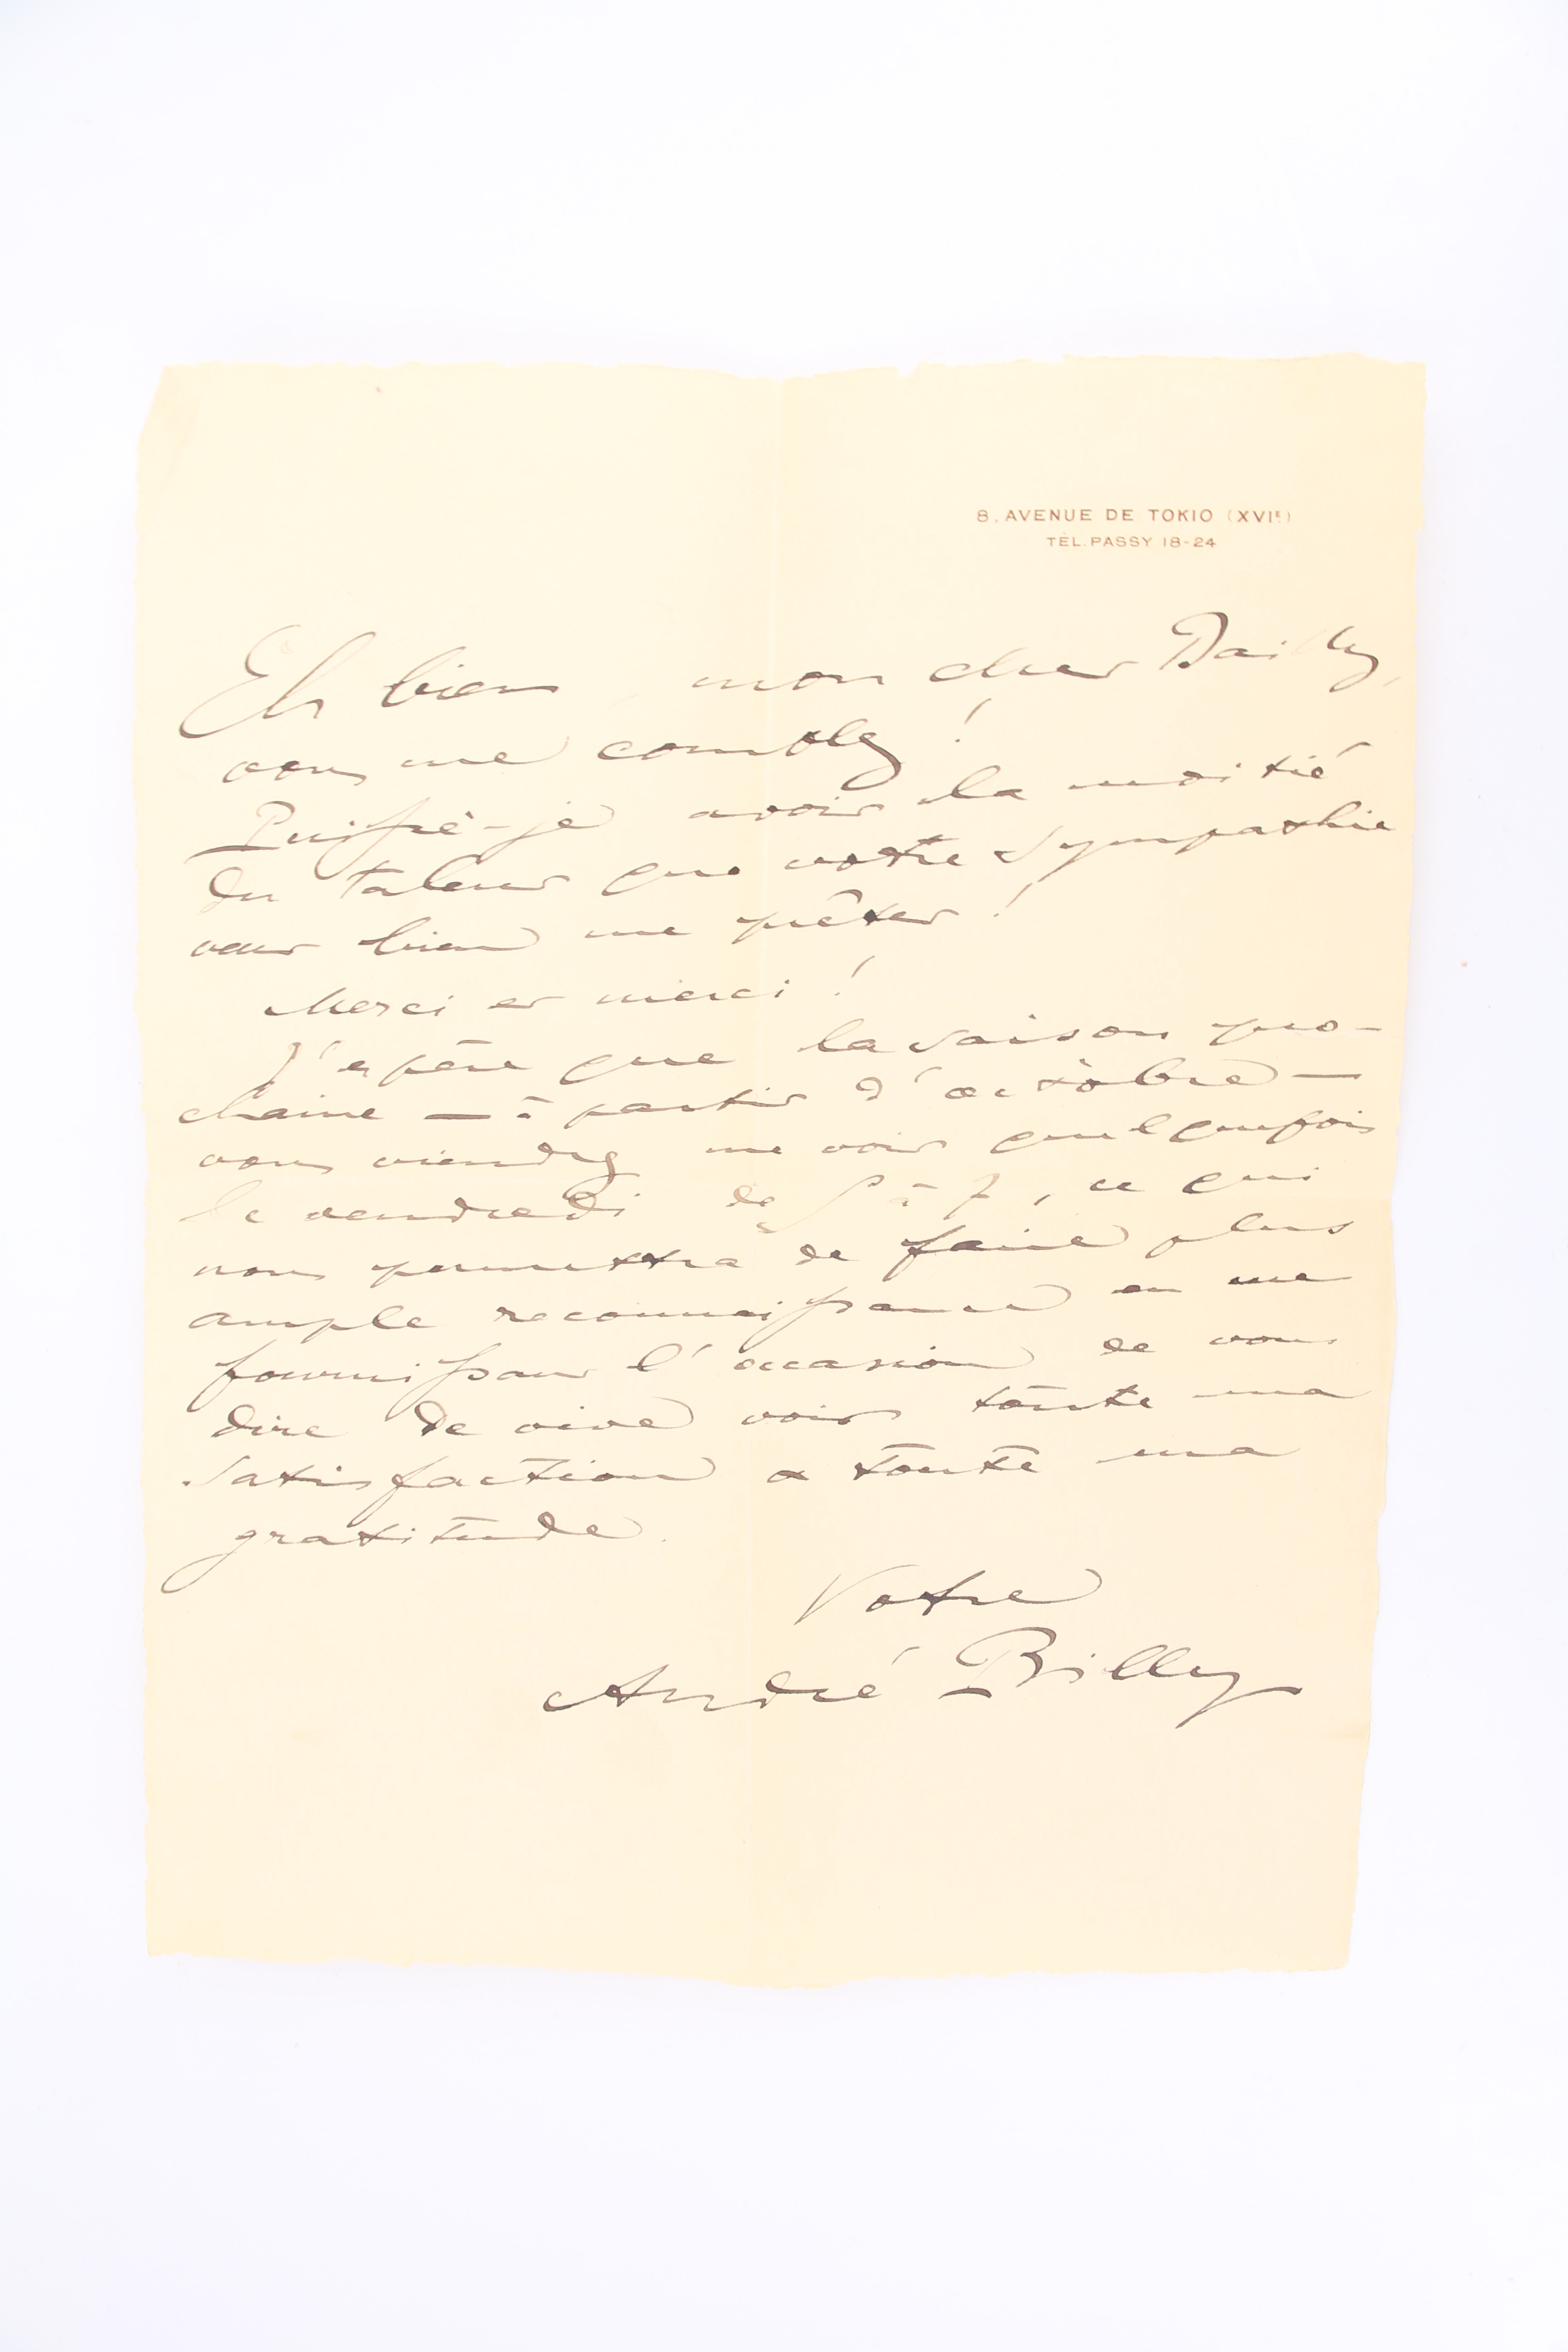 8, AVENUE DE TOKIO (XVIE)
TÉL. PASSY 18-24
Eh bien, mon cher Bailly,
vous me comblez !
Puissé-je avoir la moitié
du talent que votre sympathie
veut bien me prêter !
Merci et merci !
J'espère que la saison pro-
chaine — à partir d'octobre —
vous viendrez me voir quelquefois
le vendredi de 5 à 7, ce qui
nous permettra de faire plus
ample reconnaissance en me
fournissant l'occasion de vous
dire de vive voix toute ma
satisfaction et toute ma
gratitude.
Votre
André Billy